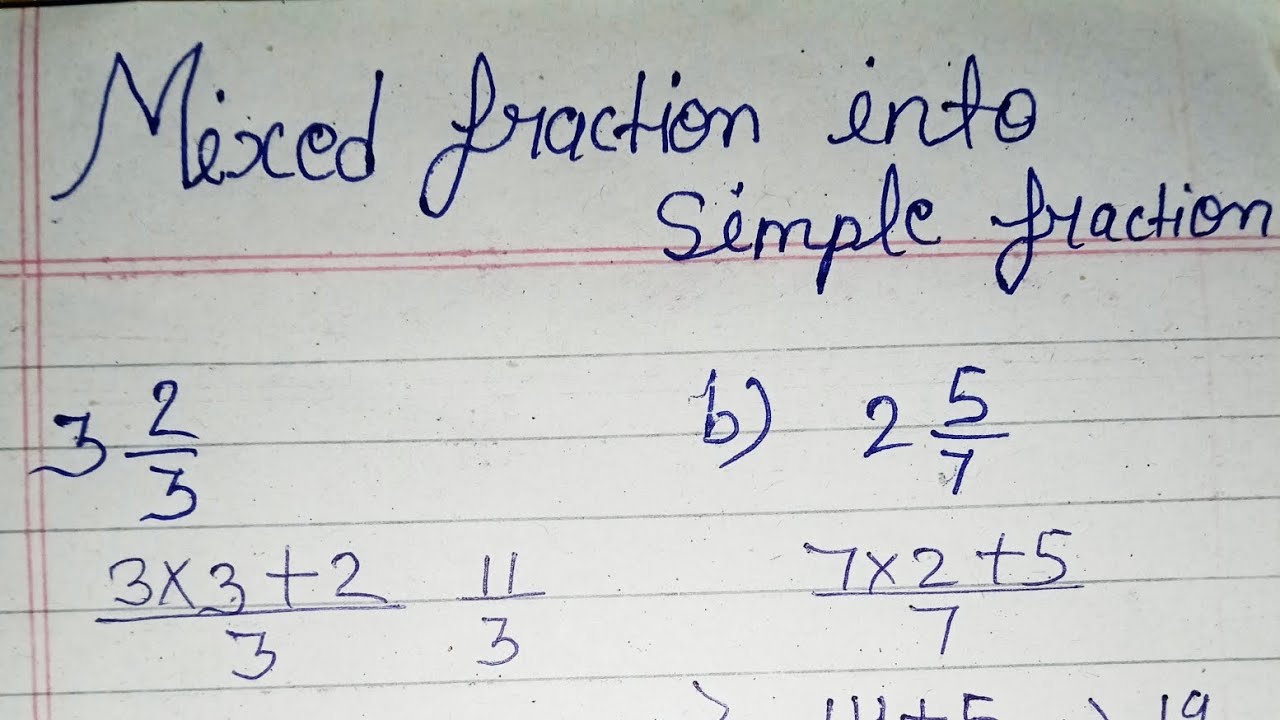 Mixed fraction into
Simple fraction
3 2/3
b) 2 5/7
(3×3+2)/3 11/3
(7×2+5)/7
> 14+5 > 19